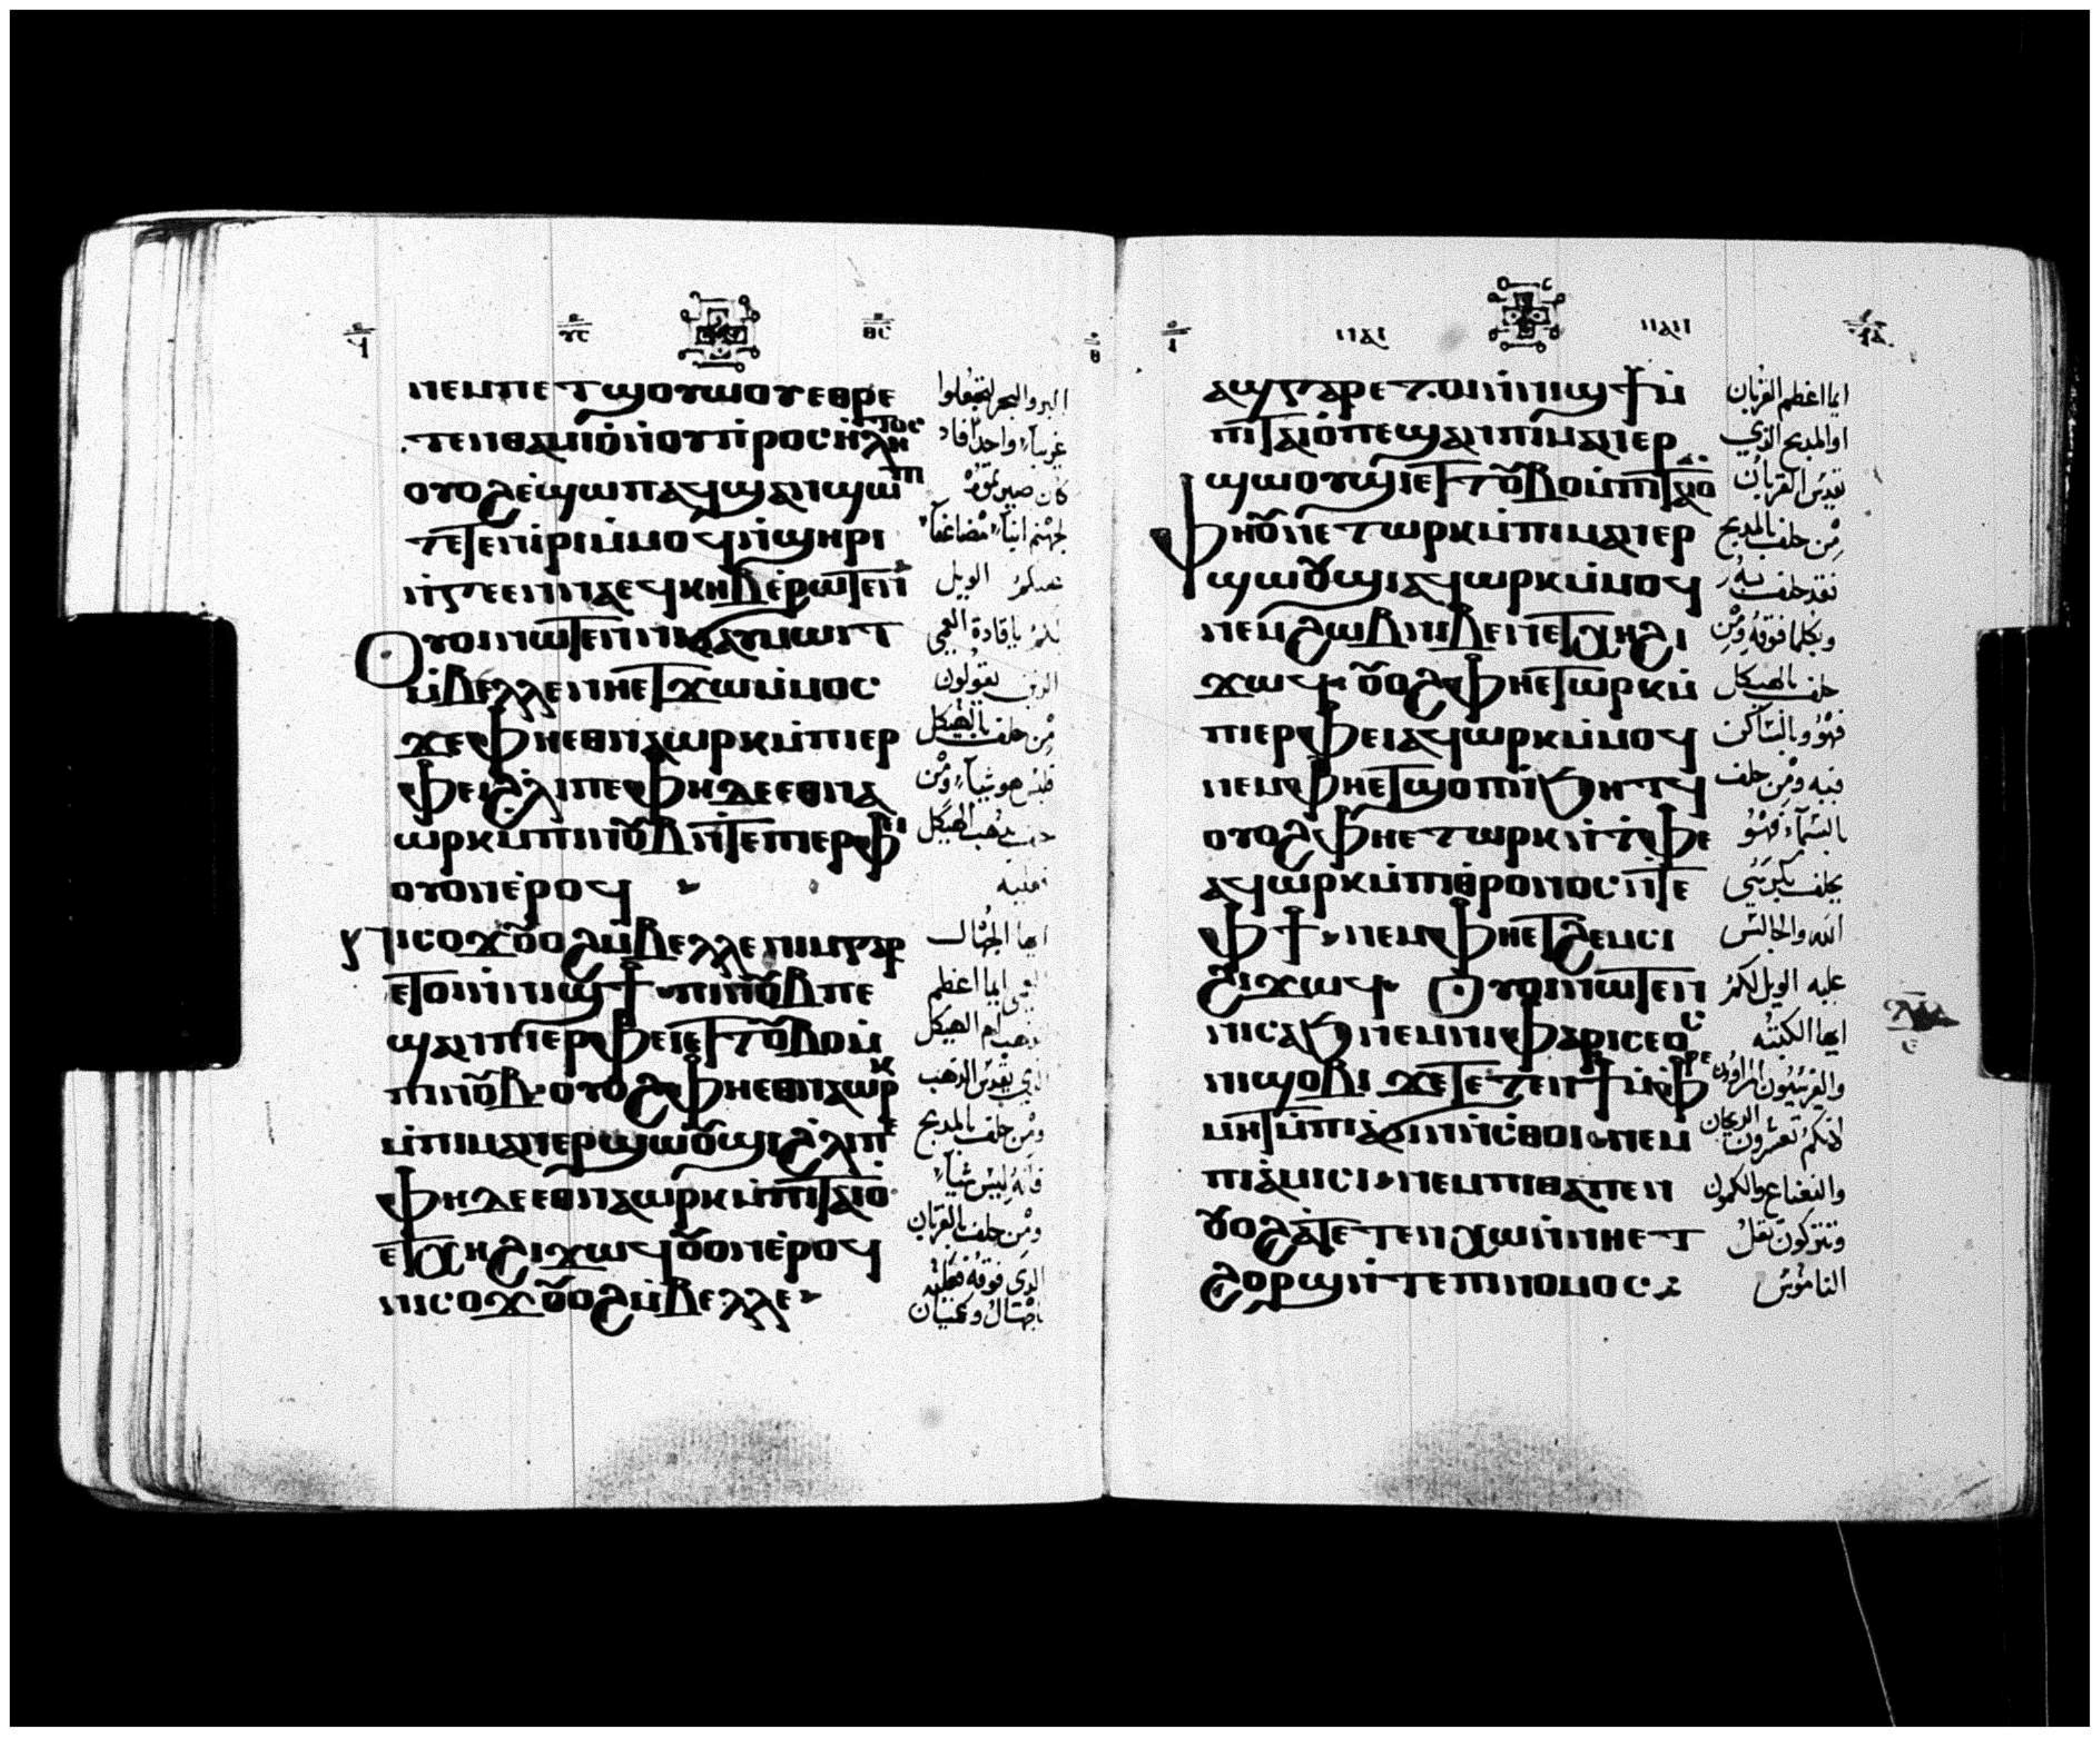 ⲛⲉⲙⲡⲉⲧϣⲟⲩⲱⲟⲩⲉⲑⲣⲉ
ⲧⲉⲛⲑⲁⲙⲓⲟ̀ⲛ̀ⲟⲩⲡ̀ⲣⲟⲥⲏⲗⲩⲧⲟⲥ
ⲟⲩⲟϩⲉ̀ϣⲱⲡⲁϥϣⲁⲛϣⲱⲡⲓ
ⲧⲉⲧⲉⲛⲓ̀ⲣⲓⲙ̀ⲙⲟϥⲛ̀ϣⲏⲣⲓ
ⲛ̀ϯⲅⲉⲉⲛⲛⲁⲉϥⲕⲏⲃⲉ̀ⲣⲱⲧⲉⲛ
ⲟⲩⲟⲓⲛⲱⲧⲉⲛⲛⲓϭⲁⲩⲙⲱⲓⲧ
ⲙ̀ⲃⲉⲗⲗⲉⲛⲏⲉⲧϫⲱⲙ̀ⲙⲟⲥ
ϫⲉⲫⲏⲉⲑⲛⲁⲱⲣⲕⲙ̀ⲡⲓⲉⲣ
ⲫⲉⲓϩ̀ⲗⲓⲡⲉⲫⲏⲇⲉⲉⲑⲛⲁ
ⲱⲣⲕⲙ̀ⲡⲓⲛⲟⲩⲃⲛ̀ⲧⲉⲡⲓⲉⲣⲫⲉⲓ
ⲟⲩⲟⲛⲉ̀ⲣⲟϥ
ⲛⲓⲥⲟϫⲟⲩⲟϩⲙ̀ⲃⲉⲗⲗⲉⲛⲓⲙⲅⲁⲣ
ⲉⲧⲟⲓⲛ̀ⲛⲓϣϯⲡⲓⲛⲟⲩⲃⲡⲉ
ϣⲁⲛⲡⲓⲉⲣⲫⲉⲓⲉⲧⲧⲟⲩⲃⲟⲙ̀
ⲡⲓⲛⲟⲩⲃⲟⲩⲟϩⲫⲏⲉⲑⲛⲁⲱⲣⲕ
ⲙ̀ⲡⲓⲙⲁⲛⲉⲣϣⲱⲟⲩϣⲓϩ̀ⲗⲓⲡⲉ
ⲫⲏⲇⲉⲉⲑⲛⲁⲱⲣⲕⲙ̀ⲡⲓⲧⲁⲓⲟ
ⲉⲧⲭⲏϩⲓϫⲱϥⲟⲩⲟⲛⲉ̀ⲣⲟϥ
ⲛⲓⲥⲟϫⲟⲩⲟϩⲙ̀ⲃⲉⲗⲗⲉ
البر والبحر لتجعلوا
غريباً واحداً فاذا
لجهنم ابناً مضاعفاً
الويل
لكم يا قادة العمي
الذين يقولون
من حلف بالهيكل
فليس هو شياً ومن
بذهب الهيكل
فعليه
ايها الجهال
ايما اعظم
الذهب ام الهيكل
الذي يقدس الذهب
ومن حلف بالمذبح
فانه ليس شياً
ومن حلف بالقربان
الذي فوقه فعليه
ⲁϣⲅⲁⲣⲉⲧⲟⲓⲛ̀ⲛⲓϣϯⲙ̀
ⲡⲓⲧⲁⲓⲟ̀ⲡⲉϣⲁⲛⲡⲓⲙⲁⲛⲉⲣ
ϣⲱⲟⲩϣⲓⲉⲧⲧⲟⲩⲃⲟⲙ̀ⲡⲓⲧⲁⲓⲟ
ⲫⲏⲟⲩⲛⲉⲧⲱⲣⲕⲙ̀ⲡⲓⲙⲁⲛⲉⲣ
ϣⲱⲟⲩϣⲓⲁϥⲱⲣⲕⲙ̀ⲙⲟϥ
ⲛⲉⲙϩⲱⲃⲛⲓⲃⲉⲛⲉⲧⲭⲏϩⲓ
ϫⲱϥⲟⲩⲟϩⲫⲏⲉⲧⲱⲣⲕⲙ̀
ⲡⲓⲉⲣⲫⲉⲓⲁϥⲱⲣⲕⲙ̀ⲙⲟϥ
ⲛⲉⲙⲫⲏⲉⲧϣⲟⲡⲛ̀ϧⲏⲧϥ
ⲟⲩⲟϩⲫⲏⲉⲧⲱⲣⲕⲛ̀ⲧ̀ⲫⲉ
ⲁϥⲱⲣⲕⲙ̀ⲡⲓⲑⲣⲟⲛⲟⲥⲛ̀ⲧⲉ
ⲫϯⲛⲉⲙⲫⲏⲉⲧϩⲉⲙⲥⲓ
ϩⲓϫⲱϥ ⲟⲩⲟⲓⲛⲱⲧⲉⲛ
ⲛⲓⲥⲁϧⲛⲉⲙⲛⲓⲫⲁⲣⲓⲥⲉⲟⲥ
ⲛⲓϣⲟⲃⲓϫⲉⲧⲉⲧⲉⲛϯⲙ̀ⲫⲣⲉ
ⲙⲏⲧⲙ̀ⲡⲓⲁϭⲓⲛⲛ̀ⲥ̀ⲑⲟⲓⲛⲉⲙ
ⲡⲓⲁ̀ⲙⲓⲥⲓⲛⲉⲙⲡⲓⲑⲁⲡⲉⲛ
ⲟⲩⲟϩⲁ̀ⲧⲉⲧⲉⲛⲭⲱⲛ̀ⲛⲏⲉⲧ
ϩⲟⲣϣⲛ̀ⲧⲉⲡⲓⲛⲟⲙⲟⲥ
ايما اعظم القربان
او المذبح الذي
يقدس القربان
من حلف بالمذبح
فقد حلف به
وبكلما فوقه ومن
حلف بالهيكل
فهو وبالساكن
فيه ومن حلف
بالسماء فهو
يحلف بكرسي
الله والجالس
عليه الويل لكم
ايها الكتبة
والفريسيون المراؤون
لانكم تعشرون
والنعناع والكمون
وتتركون ثقل
الناموس